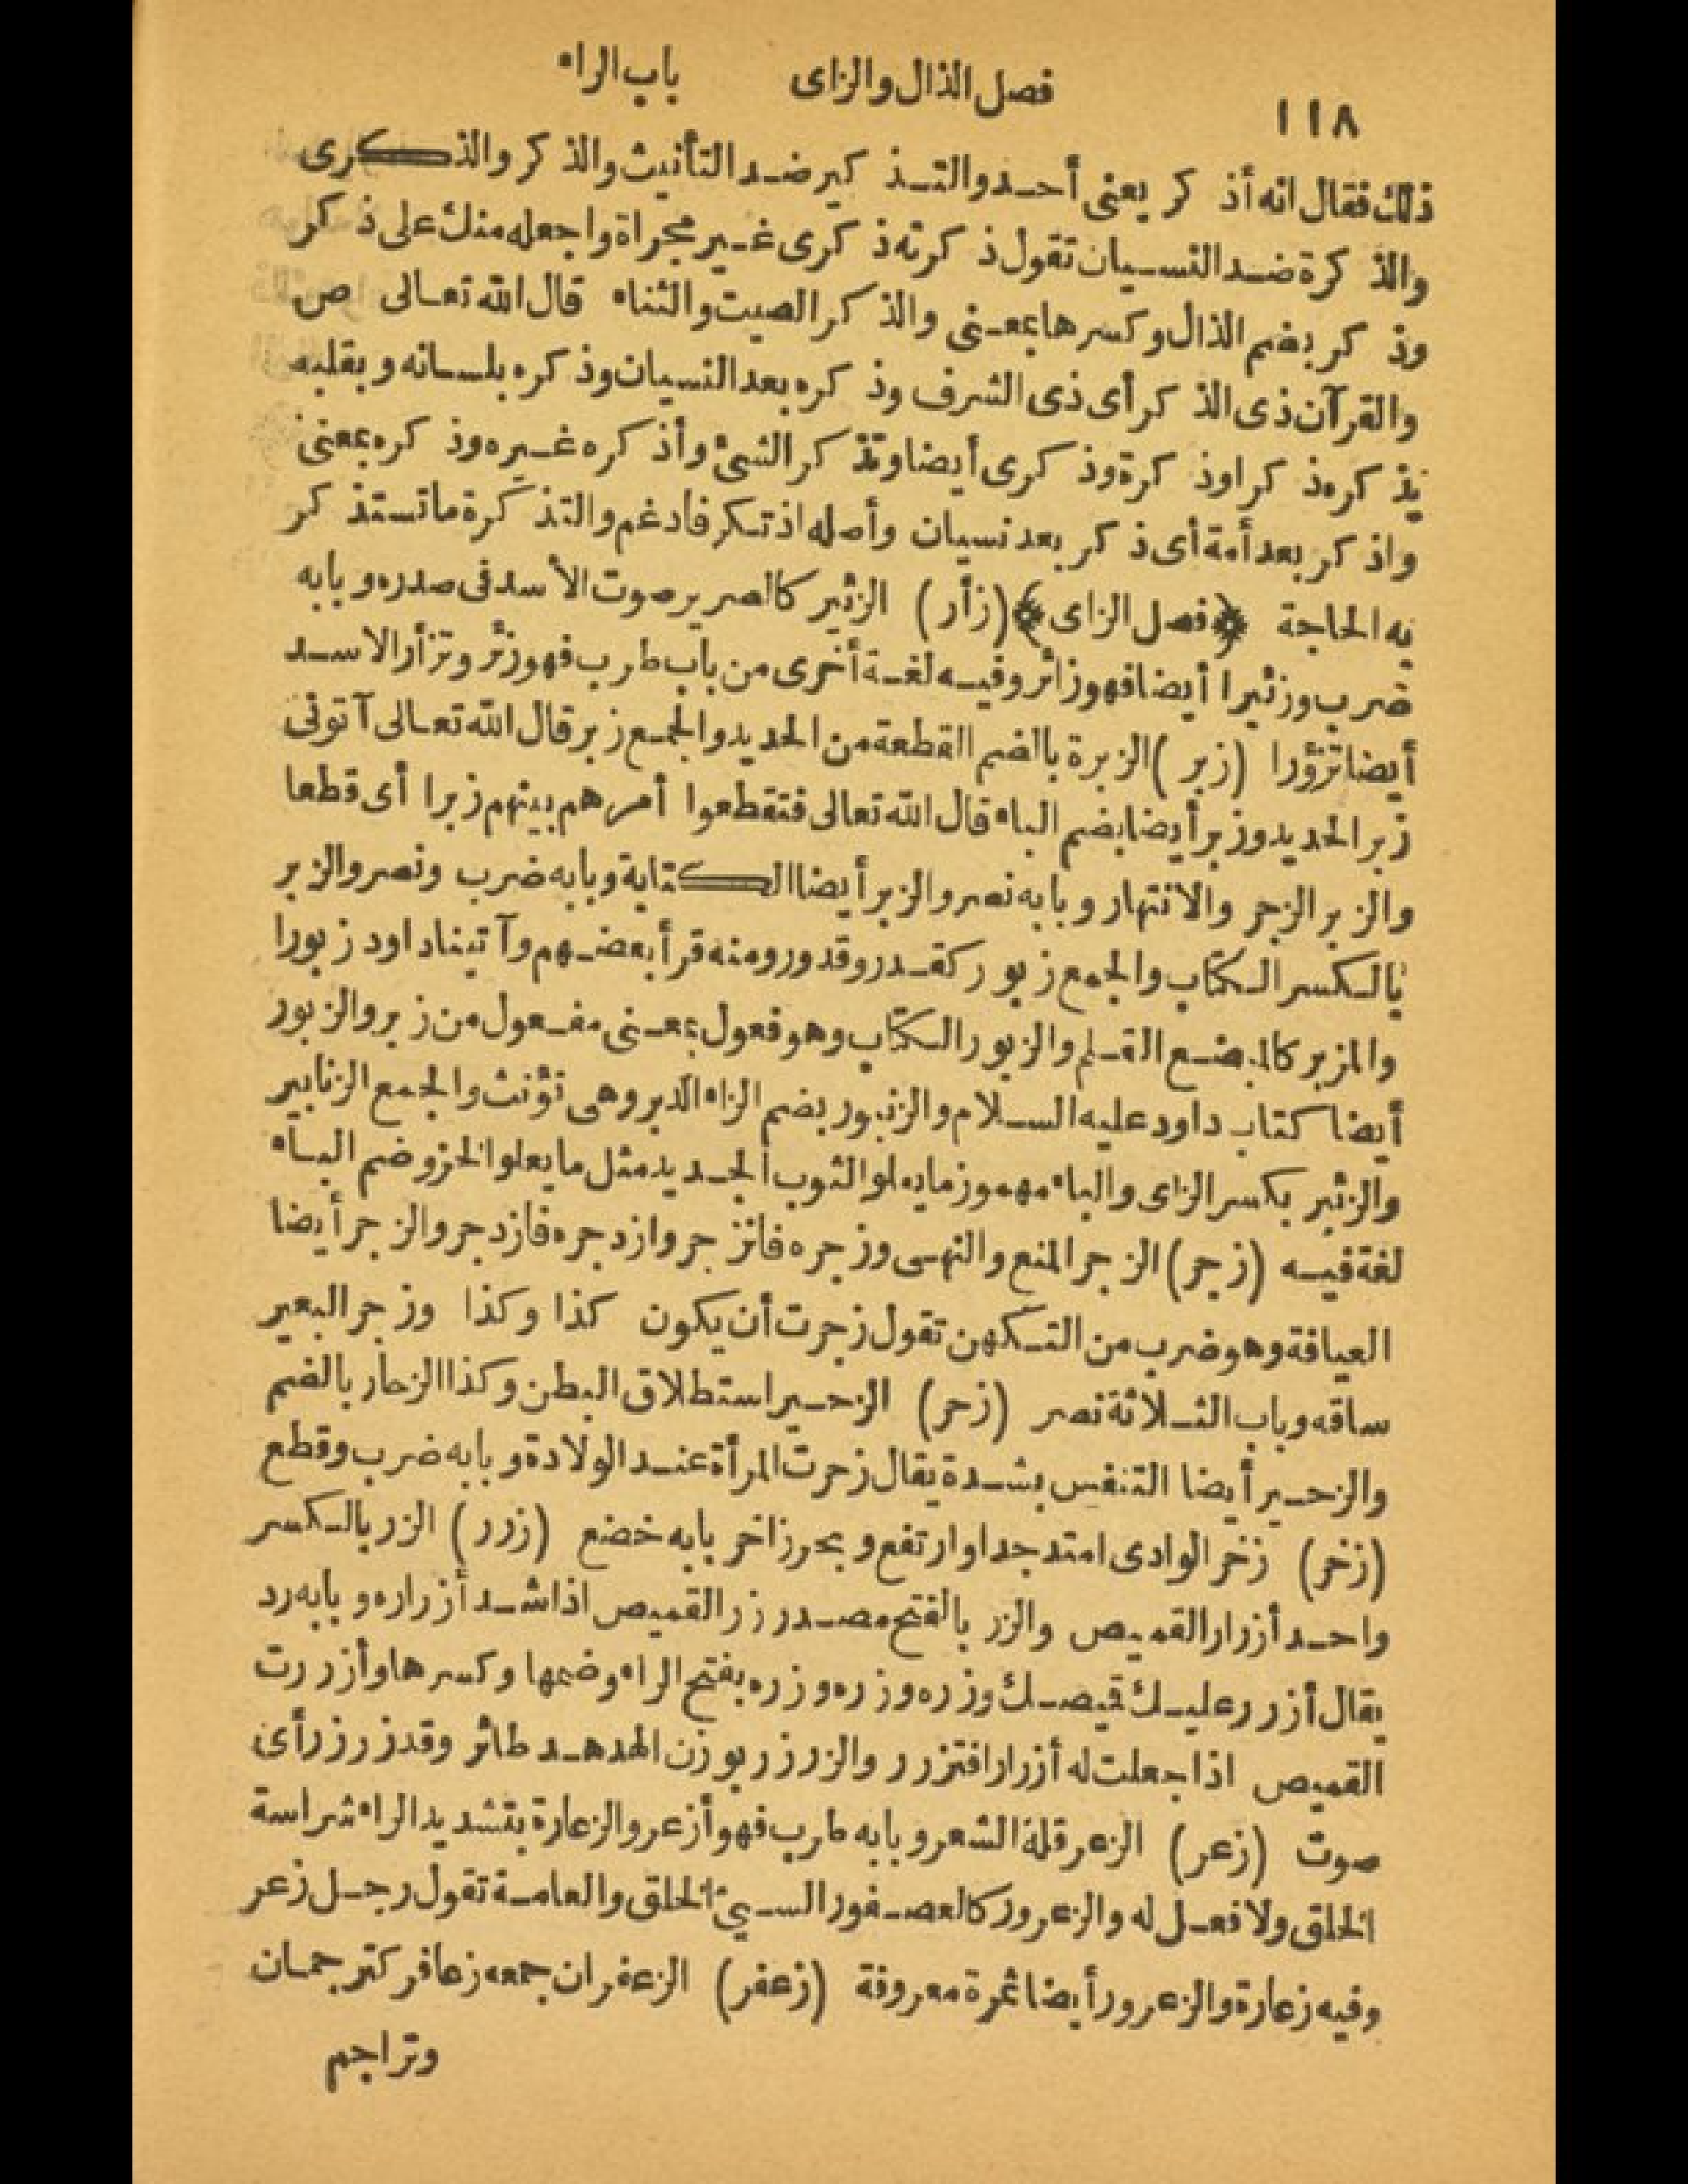 ١١٨ فصل الذال والزاى باب الراء
ذلك فقال انه أذكر يعنى أحد والتذكير ضد التأنيث والذكر والذكرى
والذكرة ضد النسيان تقول ذكرته ذكرى غير مجراة واجعله منك على ذكر
وذكر بضم الذال وكسرها بمعنى والذكر الصيت والثناء قال الله تعالى ص
والقرآن ذى الذكر أى ذى الشرف وذكره بعد النسيان وذكره بلسانه وبقلبه
يذكره ذكرا وذكرة وذكرى أيضا وتذكر الشئ وأذكره غيره وذكره بمعنى
واذكر بعد أمة أى ذكر بعد نسيان وأصله اذتكر فادغم والتذكرة ما تستذكر
به الحاجة ﴿فصل الزاى﴾ (زأر) الزئير كالصرير صوت الأسد فى صدره وبابه
ضرب وزئيرا أيضا فهو زائر وفيه لغة أخرى من باب طرب فهو زئر وتزأر الاسد
أيضا تزؤرا (زبر) الزبرة بالضم القطعة من الحديد والجمع زبر قال الله تعالى آتونى
زبر الحديد وزبر أيضا بضم الباء قال الله تعالى فتقطعوا أمرهم بينهم زبرا أى قطعا
والزبر الزجر والانتهار وبابه نصر والزبر أيضا الكتابة وبابه ضرب ونصر والزبر
بالكسر الكتاب والجمع زبور كقدر وقدور ومنه قرأ بعضهم وآتينا داود زبورا
والمزبر كالمبضع القلم والزبور الكتاب وهو فعول بمعنى مفعول من زبر والزبور
أيضا كتاب داود عليه السلام والزنبور بضم الزاء الدبر وهى تؤنث والجمع الزنابير
والزئبر بكسر الزاى والباء مهموز ما يعلو الثوب الجديد مثل ما يعلو الخز وضم الباء
لغة فيه (زجر) الزجر المنع والنهى وزجره فانزجر وازدجره فازدجر والزجر أيضا
العيافة وهو ضرب من التكهن تقول زجرت أن يكون كذا وكذا وزجر البعير
ساقه وباب الثلاثة نصر (زحر) الزحير استطلاق البطن وكذا الزحار بالضم
والزحير أيضا التنفس بشدة يقال زحرت المرأة عند الولادة وبابه ضرب وقطع
(زخر) زخر الوادى امتد جدا وارتفع وبحر زاخر بابه خضع (زرر) الزر بالكسر
واحد أزرار القميص والزر بالفتح مصدر زر القميص اذا شد أزراره وبابه رد
يقال أزرر عليك قميصك وزره وزره وزره بفتح الراء وضمها وكسرها وأزررت
القميص اذا جعلت له أزرارا فتزرر والزرزر بوزن الهدهد طائر وقد زرزر أى
صوت (زعر) الزعر قلة الشعر وبابه طرب فهو أزعر والزعارة بتشديد الراء شراسة
الخلق ولا فعل له والزعرور كالعصفور السيئ الخلق والعامة تقول رجل زعر
وفيه زعارة والزعرور أيضا ثمرة معروفة (زعفر) الزعفران جمعه زعافر كترجمان
وتراجم